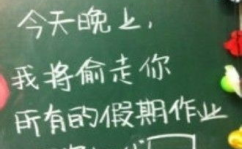 今天晚上,
我将偷走你
所有的假期作业